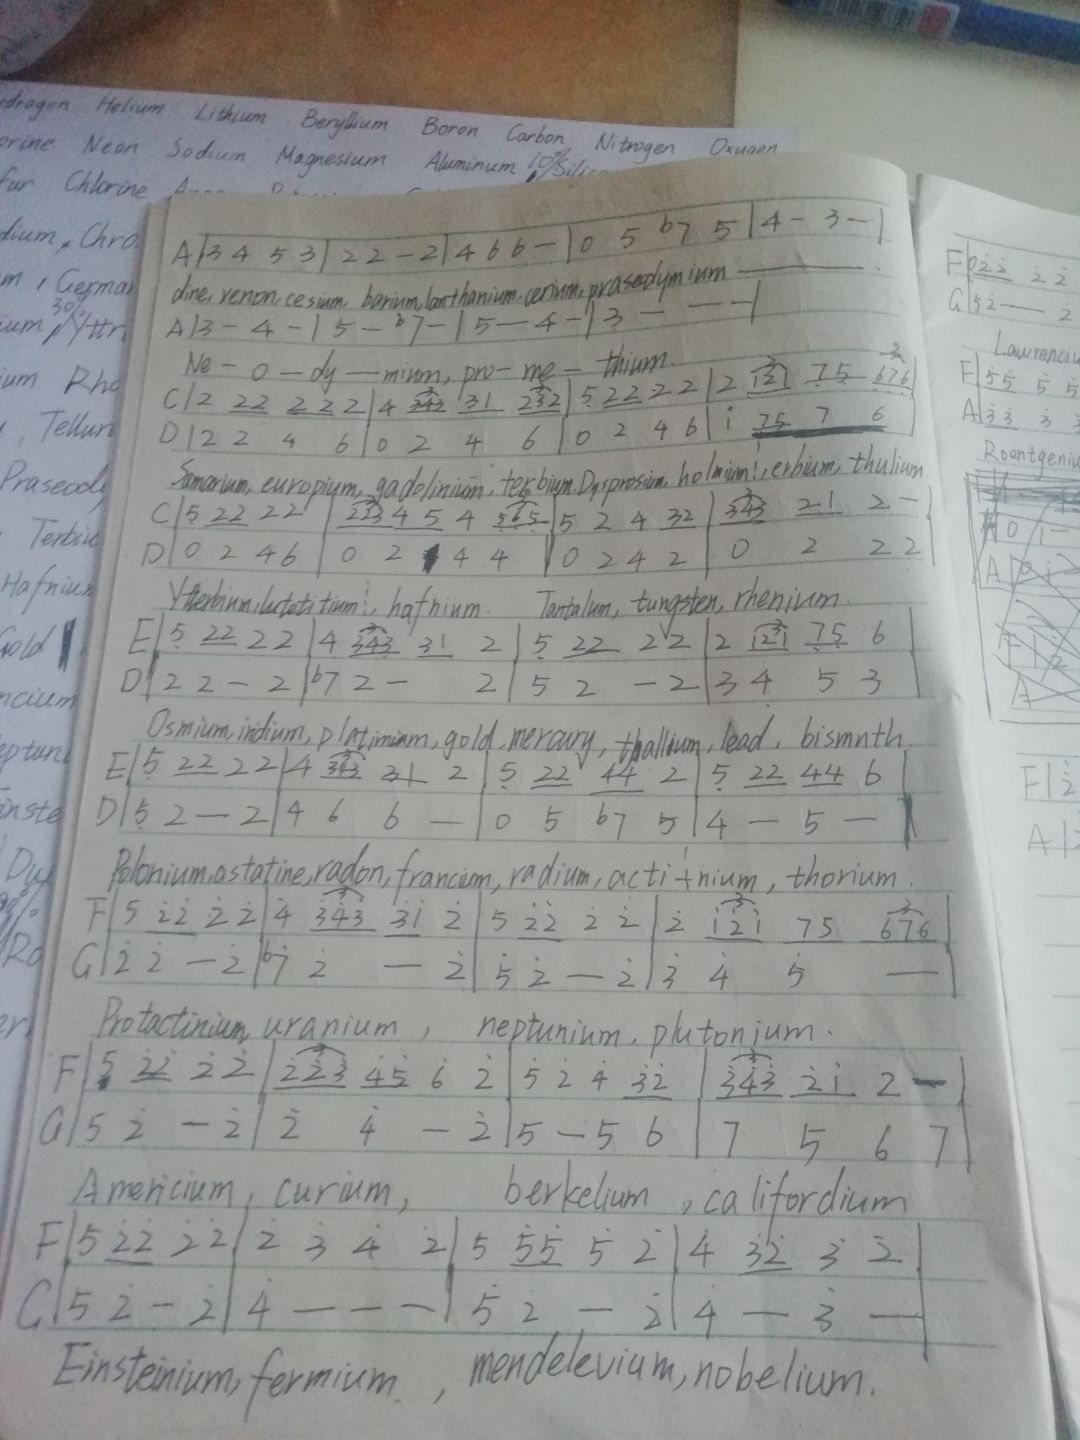 Helium Lithium Beryllium Boron Carbon Nitrogen Oxygen
Neon Sodium Magesium Aluminum 10%
Chlorine
A|3 4 5 3|2 2 - 2|4 6 6 -|0 5 b7 5|4 - 3 -|
dine, xenon, cesium, barium, lanthanium, cerium, praseodymium
A|3 - 4 -|5 - b7 -|5 - 4 -|3 - - -|
Ne - o - dy - mium, pro - me - thium.
C|2 22 222 2|4 343 31 232|5 22 2 2|2 121 75 676|
D|2 2 4 6|0 2 4 6|0 2 4 6|1 75 7 6
Samarium, europium, gadolinium, terbium Dysprosium, holmium, erbium, thulium
C|5 22 22|223 4 5 4 565|5 2 4 32|343 21 2 -|
D|0 2 4 6|0 2 4 4|0 2 4 2|0 2 2 2
Ytterbium, hafnium. Tantalum, tungsten, rhenium.
E|5 22 2 2|4 343 31 2|5 22 2 2|2 121 75 6|
D|2 2 - 2|b7 2 - 2|5 2 - 2|3 4 5 3|
Osmium, iridium, platinium, gold, mercury, thallium, lead, bismnth.
E|5 22 2 2|4 343 31 2|5 22 44 2|5 22 44 6|
D|5 2 - 2|4 6 6 -|0 5 b7 5|4 - 5 -|
Polonium, astatine, radon, francium, radium, actinium, thorium.
F|5 22 2 2|4 343 31 2|5 22 2 2|2 121 75 676|
G|2 2 - 2|b7 2 - 2|5 2 - 2|3 4 5 -|
Protactinium, uranium, neptunium, plutonium.
F|5 22 2 2|223 45 6 2|5 2 4 32|343 21 2 -|
G|5 2 - 2|2 4 - 2|5 - 5 6|7 5 6 7|
Americium, curium, berkelium, califordium
F|5 22 2 2|2 3 4 2|5 55 5 2|4 32 3 2|
G|5 2 - 2|4 - - -|5 2 - 2|4 - 3 -|
Einsteinium, fermium, mendelevium, nobelium.
Praseody
Hafnium
Gold
F|022 2 2
G|52 - 2
F|55 5 5
A|33 3 3